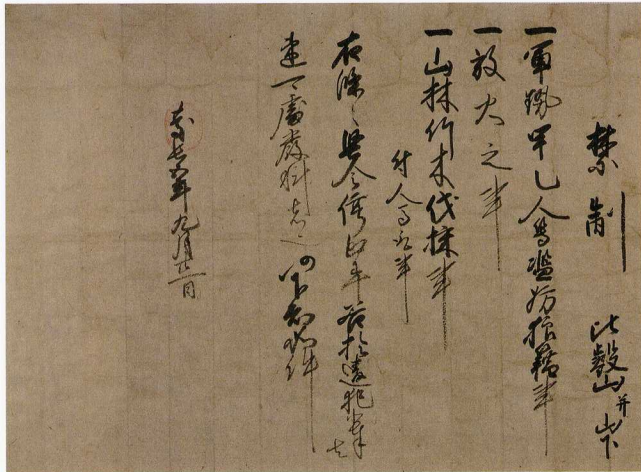 禁制 比叡山并山下
一軍勢甲乙人等濫妨狼藉事
一放火之事
一山林竹木伐採事
付人 事
右條々堅令停止畢若於違犯輩者
速可處嚴科者也仍下知如件
慶長五年九月廿一日